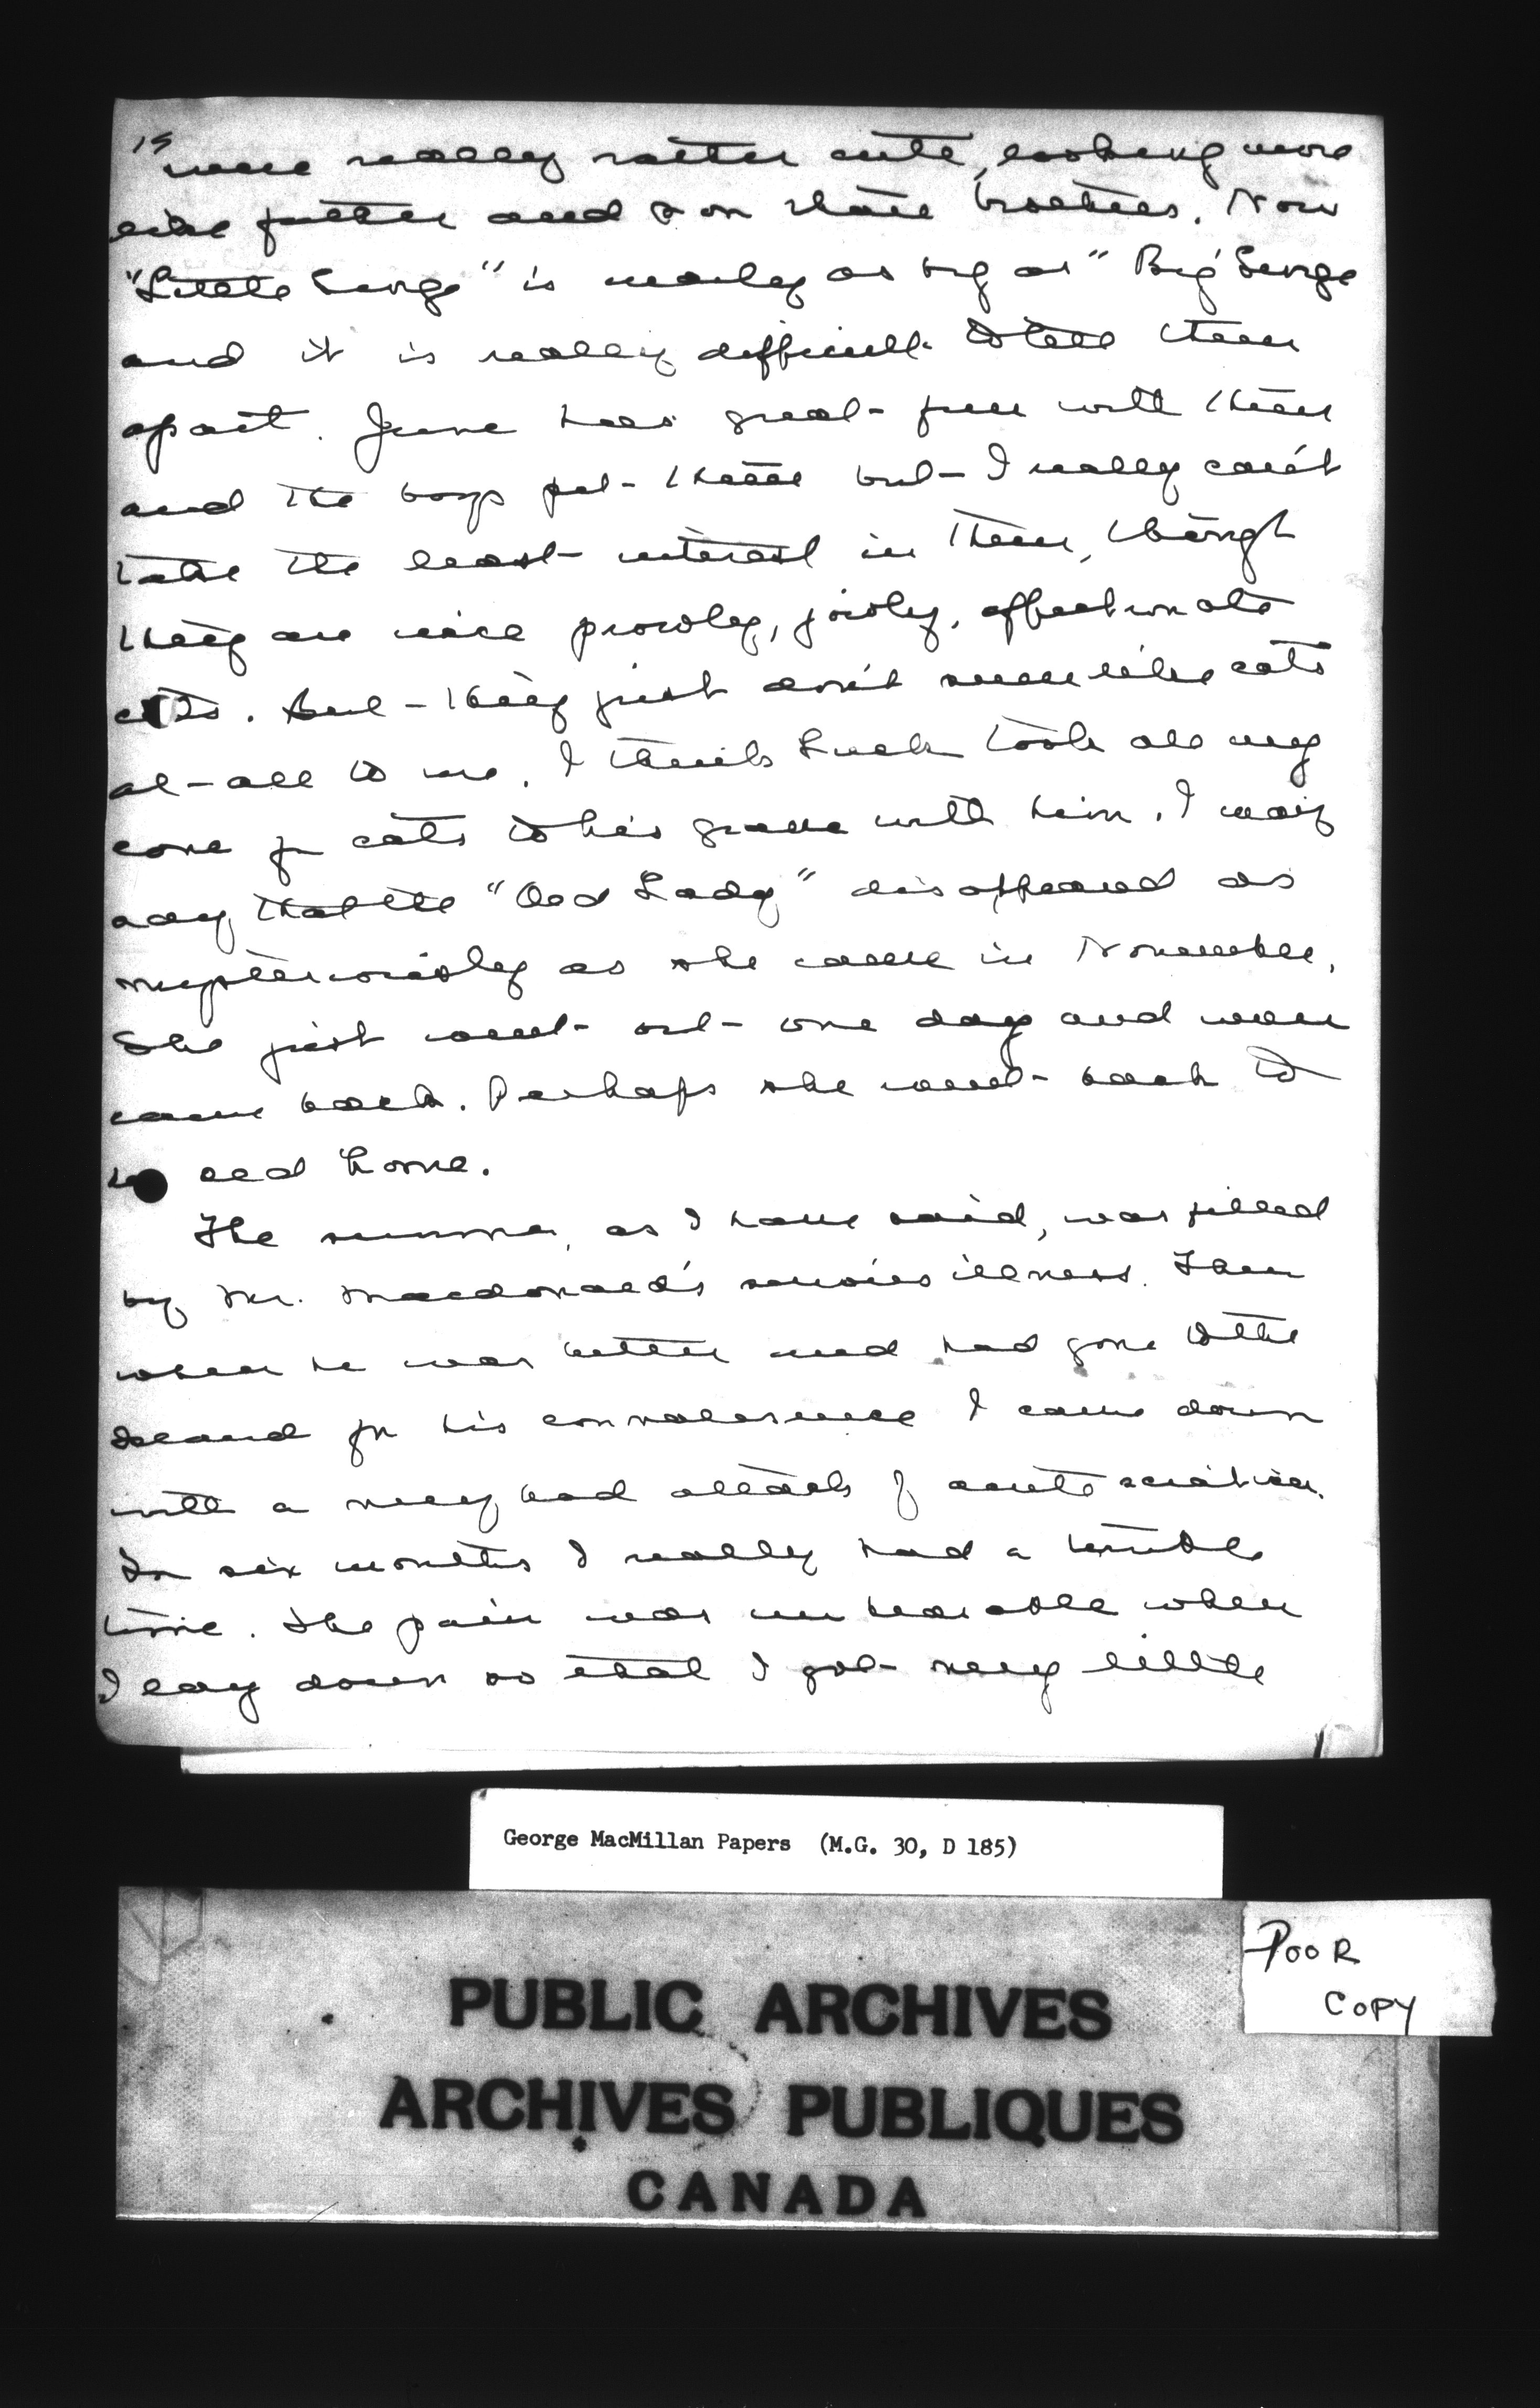 15
were really rather cute, looking more
like father and son than brothers. Now
"Little Serge" is nearly as big as "Big Serge
and it is really difficult to tell them
apart. June has great fun with them
and the boys pet them but I really can't
take the least interest in them, though
they are nice prowly, affectionate
cats. But they just don't seem like cats
at all to me. I think Luck took all my
love for cats to his grave with him. I may
say that the "Old Lady" disappeared as
mysteriously as she came in November.
She just went out one day and never
came back. Perhaps she went back to
her old home.
The summer, as I have said, was filled
by Mr. Macdonald's serious illness. Then
when he was better and had gone to the
Island for his convalescence I came down
with a very bad attack of acute sciatica.
For six months I really had a terrible
time. The pain was unbearable when
I lay down so that I got very little
George MacMillan Papers (M.G. 30, D 185)
POOR
COPY
PUBLIC ARCHIVES
ARCHIVES PUBLIQUES
CANADA